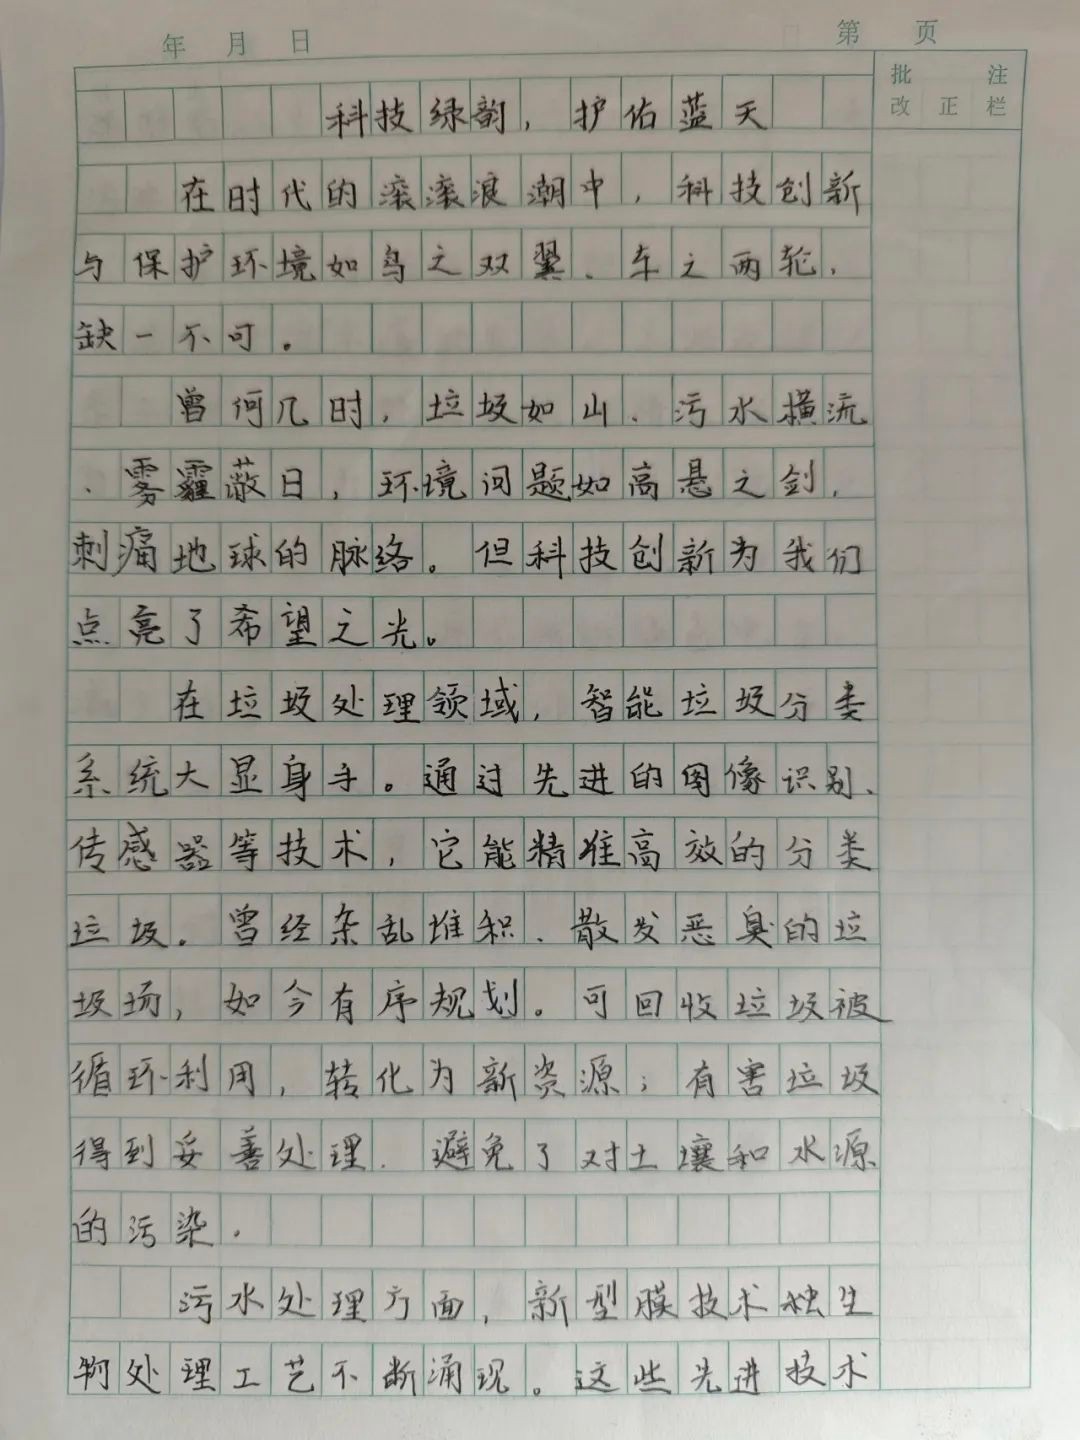 年 月 日
第 页
批 注
改 正 栏
科技绿韵，护佑蓝天
在时代的滚滚浪潮中，科技创新
与保护环境如鸟之双翼、车之两轮，
缺一不可。
曾何几时，垃圾如山、污水横流
、雾霾蔽日，环境问题如高悬之剑，
刺痛地球的脉络。但科技创新为我们
点亮了希望之光。
在垃圾处理领域，智能垃圾分类
系统大显身手。通过先进的图像识别、
传感器等技术，它能精准高效的分类
垃圾。曾经杂乱堆积、散发恶臭的垃
圾场，如今有序规划。可回收垃圾被
循环利用，转化为新资源；有害垃圾
得到妥善处理．避免了对土壤和水源
的污染．
污水处理方面，新型膜技术独生
物处理工艺不断涌现。这些先进技术